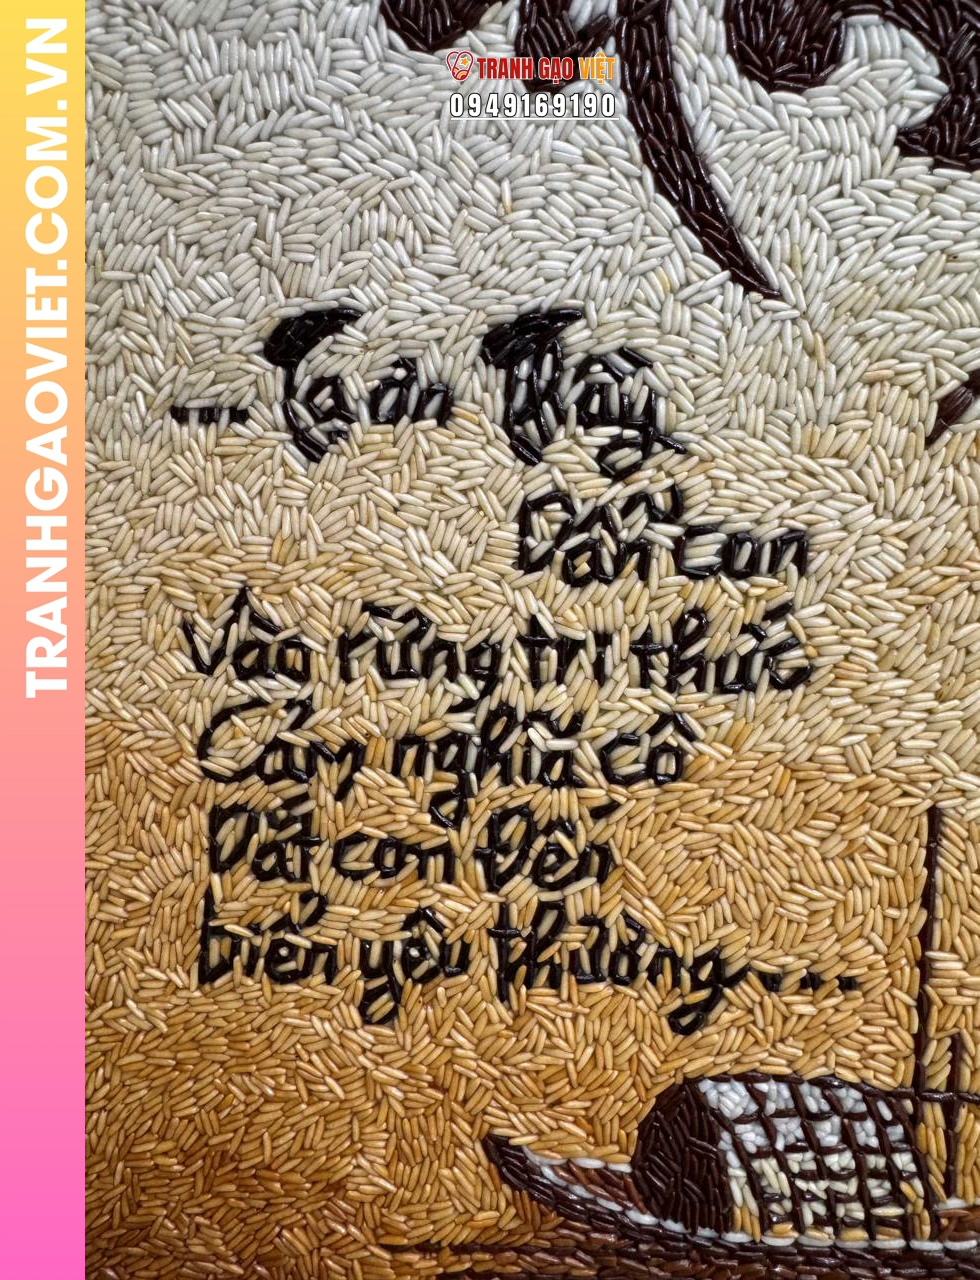 TRANH GẠO VIỆT
0949169190
TRANHGAOVIET.COM.VN
... Tạ ơn Thầy
Dẫn con
Vào rừng tri thức
Cảm nghĩa cô
Dắt con Đến
biển yêu thương...